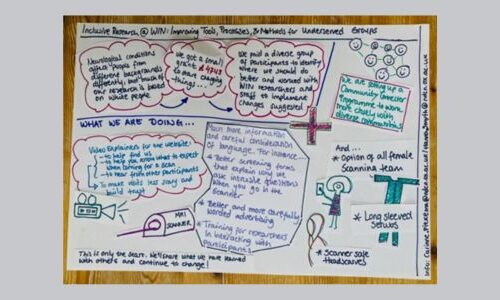 Inclusive Research @ WIN: Improving Tools, Processes, & Methods for Underserved Groups
Neurological conditions
affect people from
different backgrounds
differently, but much of
our research is based
on white people
We got a small
grant
to start changing
things...
We paid a diverse group
of participants to identify
where we should do
better and worked with
WIN researchers and
staff to implement
changes suggested
We are setting up a
Community Connector
Programme to work
more closely with
diverse communities
WHAT WE ARE DOING...
Video Explainers for the website:
- to help find us
- to help you know what to expect
when coming for a scan
- to hear from other participants
To make visits less scary and
build trust
MRI
SCANNER
This is only the start. We'll share what we have learned
with others and continue to change!
More information
and careful consideration
of language. For instance...
* Better screening forms
that explain why we
ask intrusive questions
when you go in the
Scanner
* Better and more carefully
worded advertising
* Training for researchers
in interacting with
Participants
And...
* Option of all female
Scanning team
* Long sleeved
scrubs
* Scanner safe
Headscarves
Info: